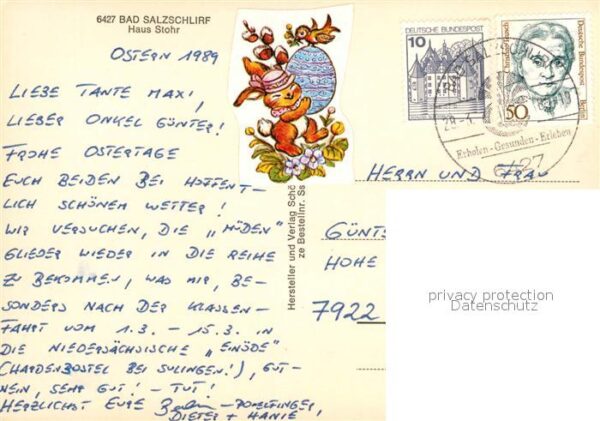 6427 BAD SALZSCHLIRF
Haus Stohr
OSTERN 1989
LIEBE TANTE MAXI,
LIEBER ONKEL GÜNTER!
FROHE OSTERTAGE
EUCH BEIDEN BEI HOFFENT-
LICH SCHÖNEM WETTER!
WIR VERSUCHEN, DIE „MÜDEN"
GLIEDER WIEDER IN DIE REIHE
ZU BEKOMMEN, WAS MIR, BE-
SONDERS NACH DER KLASSEN-
FAHRT VOM 1.3. – 15.3. IN
DIE NIEDERSÄCHSISCHE „EINÖDE"
(CHARDENBOSTEL BEI SULINGEN!), GUT-
NEIN, SEHR GUT! – TUT!
HERZLICHST EURE
DIETER + HANIE
Hersteller und Verlag Schö
ze Bestellnr. Ss
10
DEUTSCHE BUNDESPOST
50
Deutsche Bundespost
Berlin
Erholen - Gesunden - Erleben
HERRN UND FRAU
GÜNT
HOHE
7922
privacy protection
Datenschutz